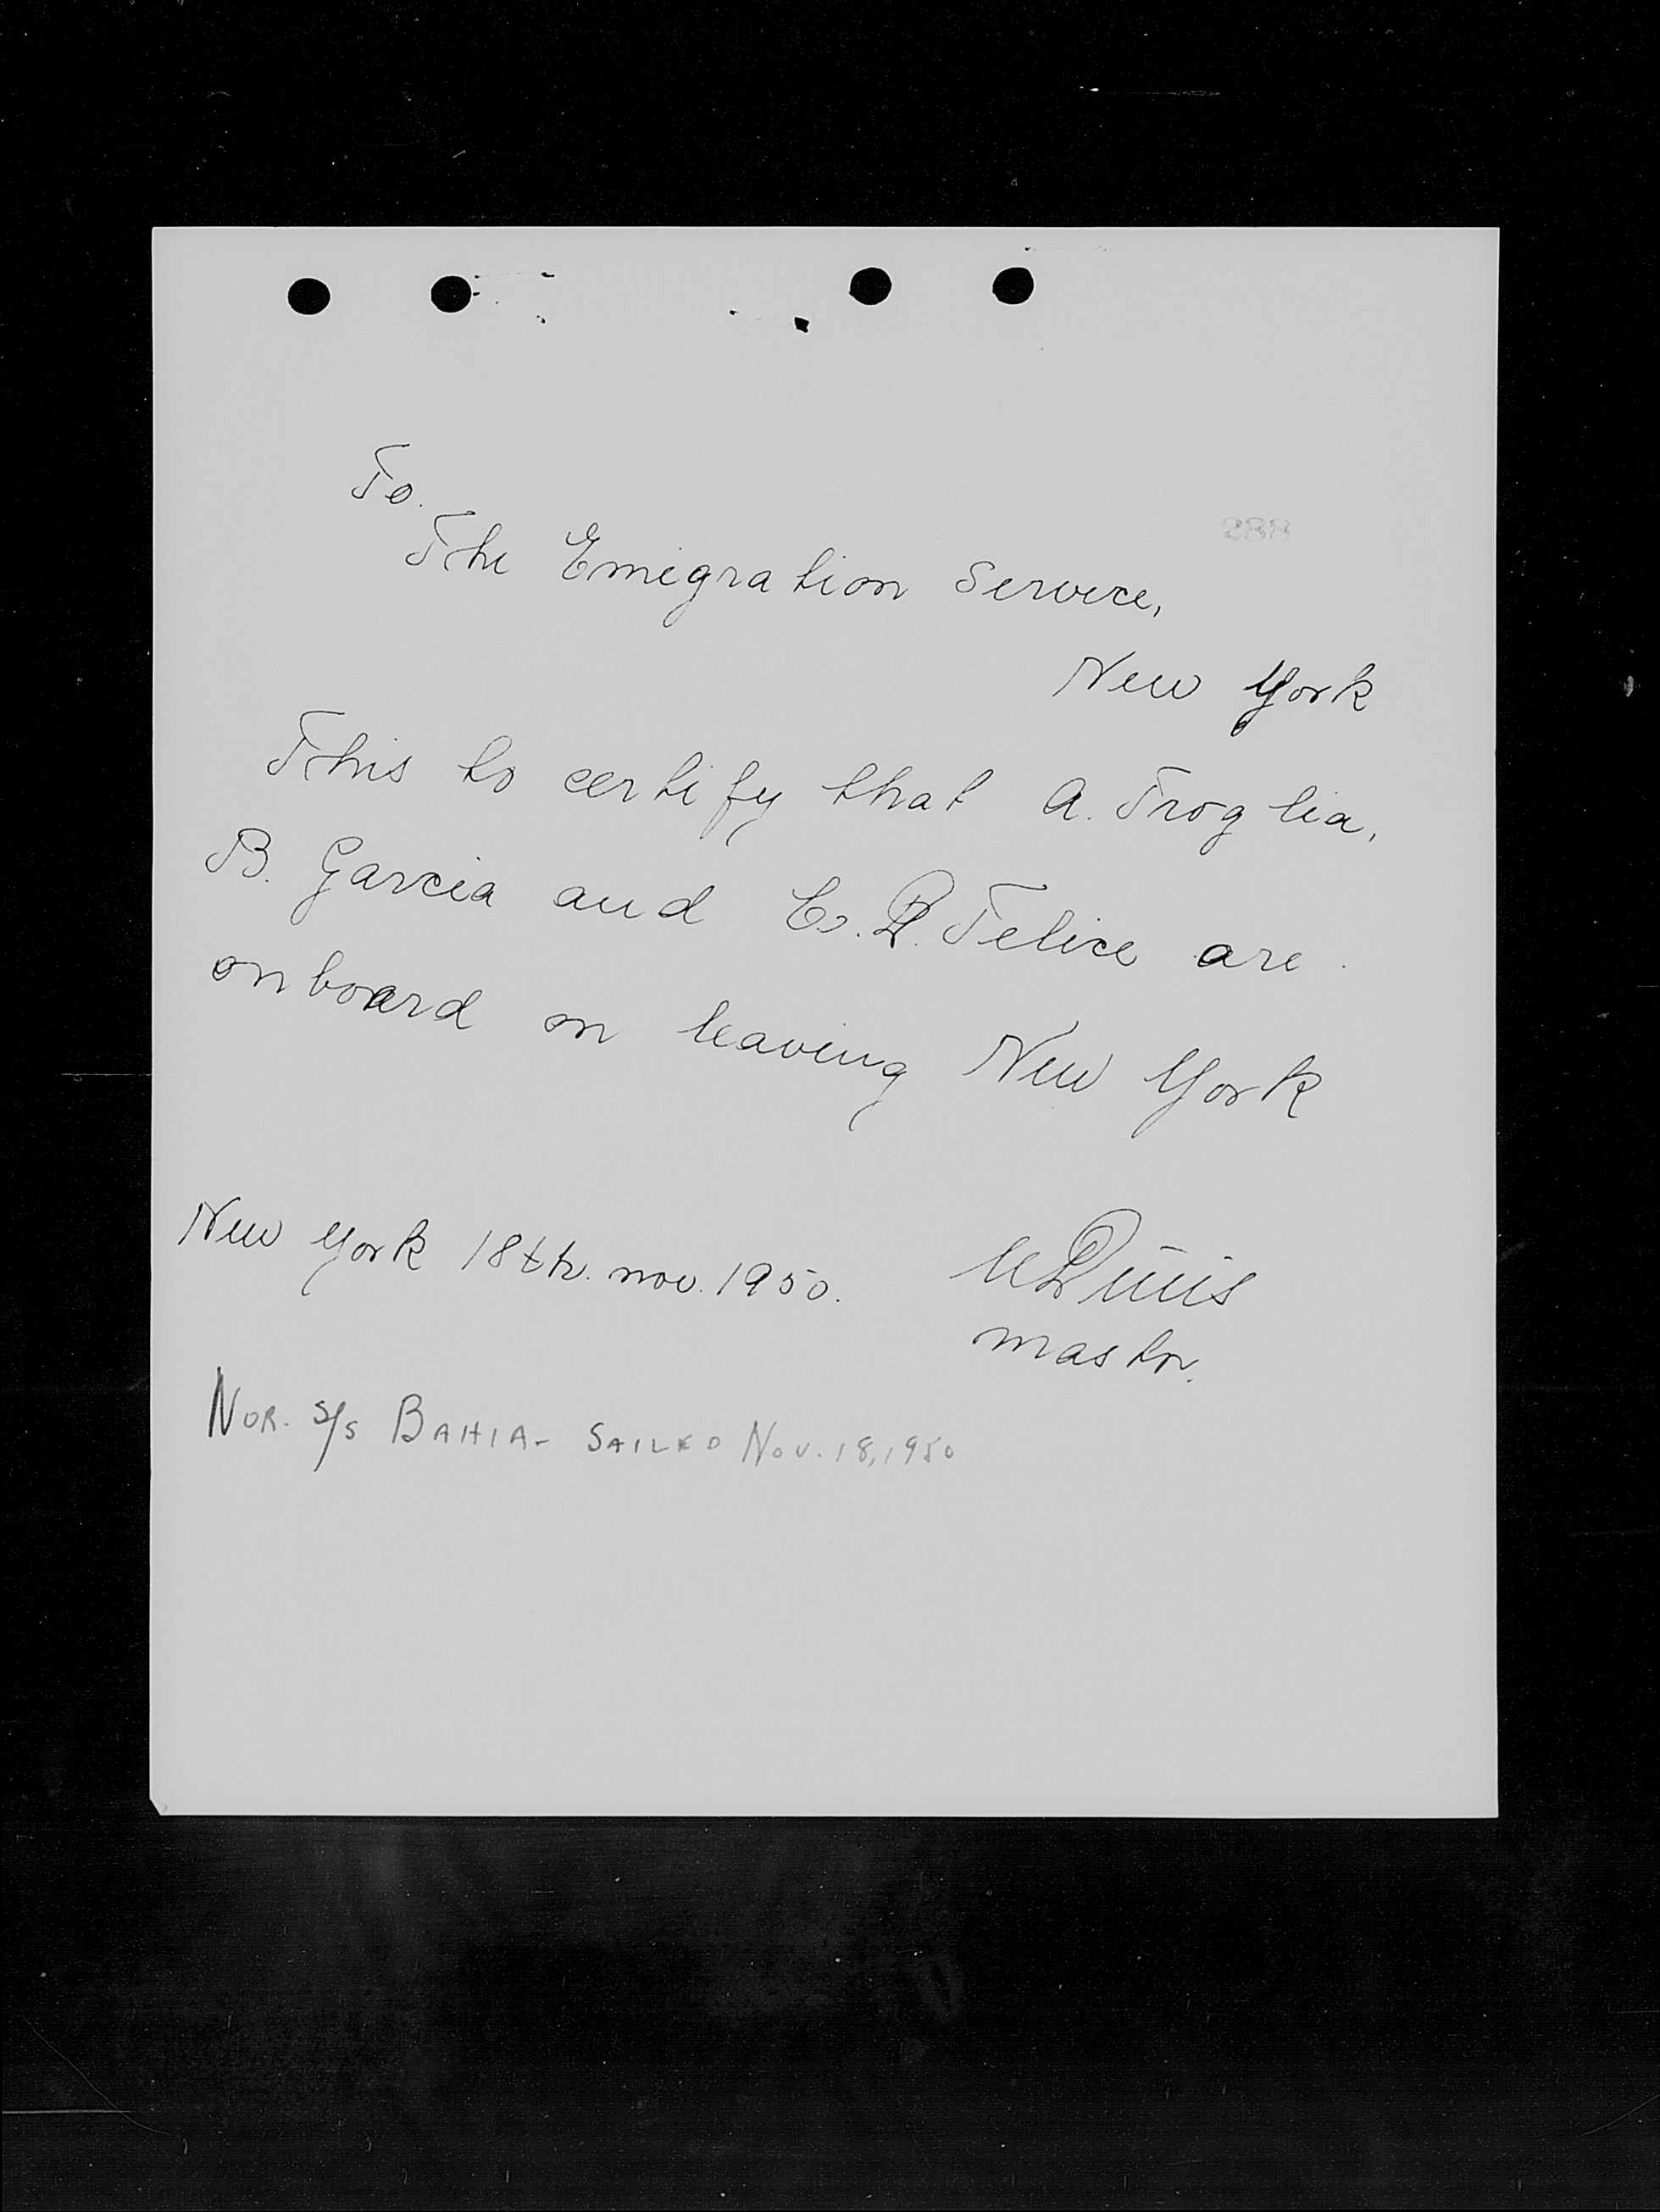 To.
288
The Emigration Service,
New York
This to certify that A. Troglia,
B. Garcia and C. D. Felice are
onboard on leaving New York
New York 18th. nov. 1950.
master.
NOR. S/S BAHIA - SAILED NOV. 18, 1950